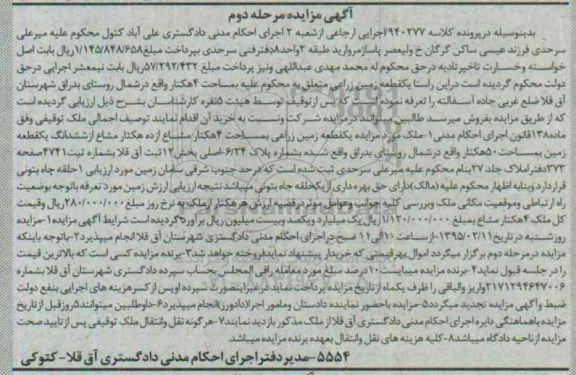 آگهی مزایده مرحله دوم
بدینوسیله درپرونده کلاسه ۹۴۰۲۷۷اجرایی ارجاعی ازشعبه ۲ اجرای احکام مدنی دادگستری علی آباد کتول محکوم علیه میرعلی
سرحدی فرزند عیسی ساکن گرگان خ ولیعصر پاساژمروارید طبقه ۲واحد۸دفترفنی سرحدی بپرداخت مبلغ۱/۱۴۵/۸۴۸/۶۵۸ریال بابت اصل
خواسته وخسارت تاخیرتادیه درحق محکوم له محمد مهدی عبداللهی ونیز پرداخت مبلغ ۵۷/۲۹۲/۴۳۲ریال بابت نیمعشر اجرایی درحق
دولت محکوم گردیده است دراین راستا یکقطعه زمین زراعی متعلق به محکوم علیه بمساحت ۴هکتار واقع درشمال روستای بدراق شهرستان
آق قلا ضلع غربی جاده آسفالته را تعرفه نموده است که پس ازتوقیف توسط هیئت ۵نفره کارشناسان بشرح ذیل ارزیابی گردیده است
که از طریق مزایده بفروش میرسد طالبین میتوانند درمزایده شرکت ونسبت به خرید آن اقدام نمایند توصیف اجمالی ملک توقیفی وفق
ماده۱۳۸قانون اجرای احکام مدنی۱-ملک مورد مزایده یکقطعه زمین زراعی بمساحت ۴هکتار مشاع ازده هکتار مشاع ازششدانگ یکقطعه
زمین بمساحت ۵۰هکتار واقع درشمال روستای بدراق واقع شده بشماره پلاک ۶/۲۴-اصلی بخش۱۲ثبت آق قلا بشماره ثبت۴۷۴۱صفحه
۳۷۳دفتراملاک جلد ۳۷بنام محکوم علیه میرعلی سرحدی ثبت شده است که درحد جنوب شرقی سامان زمین مورد ارزیابی ۱حلقه چاه بتونی
قراردارد وبنابه اظهار محکوم علیه(مالک)دارای حق بهره داری ازیکحلقه چاه بتونی میباشد نتیجه ارزیابی ارزش زمین مورد تعرفه باتوجه بوضعیت
راه ارتباطی وموقعیت مکانی ملک وبررسی کلیه جوانب وعوامل موثر درقضیه ارزش هرهکتار ازملک به نرخ روز مبلغ ۲۸۰/۰۰۰/۰۰۰ریال وقیمت
کل ملک ۴هکتار مشاع بمبلغ ۱/۱۲۰/۰۰۰/۰۰۰ریال یک میلیارد ویکصد وبیست میلیون ریال برآورد گردیده است شرایط آگهی مزایده۱-مزایده
روزشنبه درتاریخ۱۳۹۵/۰۲/۱۱-ازساعت ۱۱الی۱۲ صبح دراجرای احکام مدنی دادگستری شهرستان آق قلا انجام میپذیرد۲-باتوجه باینکه
مزایده درمرحله دوم برگزار میگردد اموال بهرقیمتی که خریدار پیشنهاد نمایدفروخته خواهد شد۳-برنده مزایده کسی است که بالاترین قیمت
را در جلسه قبول نماید۴-برنده مزایده میبایست۱۰درصد مبلغ مورد معامله رافی المجلس بحساب سپرده دادگستری شهرستان آق قلا بشماره
۲۱۷۱۲۹۴۶۴۷۰۰۶واریز والباقی را ظرف یکماه ازتاریخ مزایده پرداخت نماید درغیراینصورت سپرده اوپس ازکسرهزینه های اجرایی بنفع دولت
ضبط وآگهی مزایده تجدید میگردد۵-مزایده باحضور نماینده دادستان ومامور اجرا(دادورز)انجام میپذیرد۶-داوطلبین میتوانند۵روزقبل ازتاریخ
مزایده باهماهنگی دایره اجرای احکام مدنی دادگستری آق قلا از ملک مذکور بازدید نمایند۷-هرگونه نقل وانتقال ملک توقیفی پس ازتایید صحت
مزایده ازناحیه دادگاه میباشد۸-کلیه هزینه های نقل وانتقال بعهده برنده مزایده میباشد.
۵۵۵۴-مدیر دفتر اجرای احکام مدنی دادگستری آق قلا- کتوکی